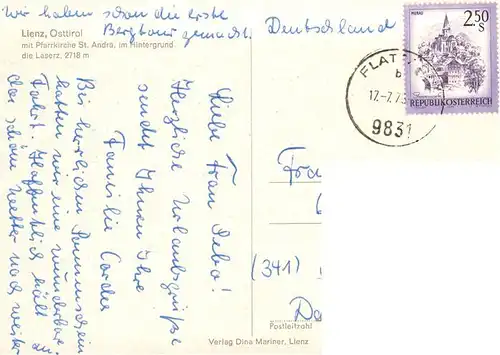 Wir haben schon die erste
Bergtour gemacht.
Lienz, Osttirol
mit Pfarrkirche St. Andrä, im Hintergrund
die Laserz, 2718 m
Liebe Frau
Herzliche Urlaubsgrüße
sendet Ihnen Ihre
Familie Cordes
Bei herrlichem Sonnenschein
hatten wir eine wunderbare
Fahrt. Hoffentlich hält
das schöne Wetter noch weiter
an.
Deutschland
MURAU
2.50
S
REPUBLIK ÖSTERREICH
FLAT
b
17.-7.75
9831
Fra
(341)
De
Postleitzahl
Verlag Dina Mariner, Lienz